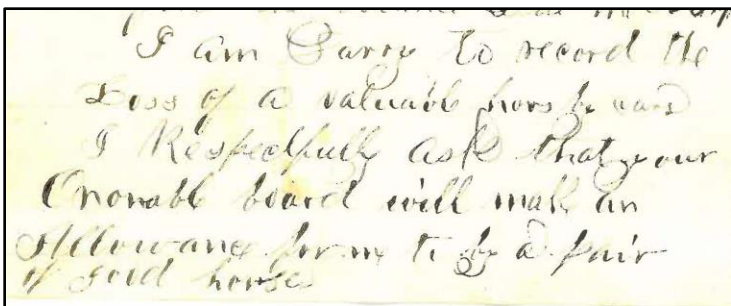 I am Sarry to record the
Loss of a valuable hors
I Respedfully ask that your
Onorable board will make an
Allowance for me to by a pair
of good horses